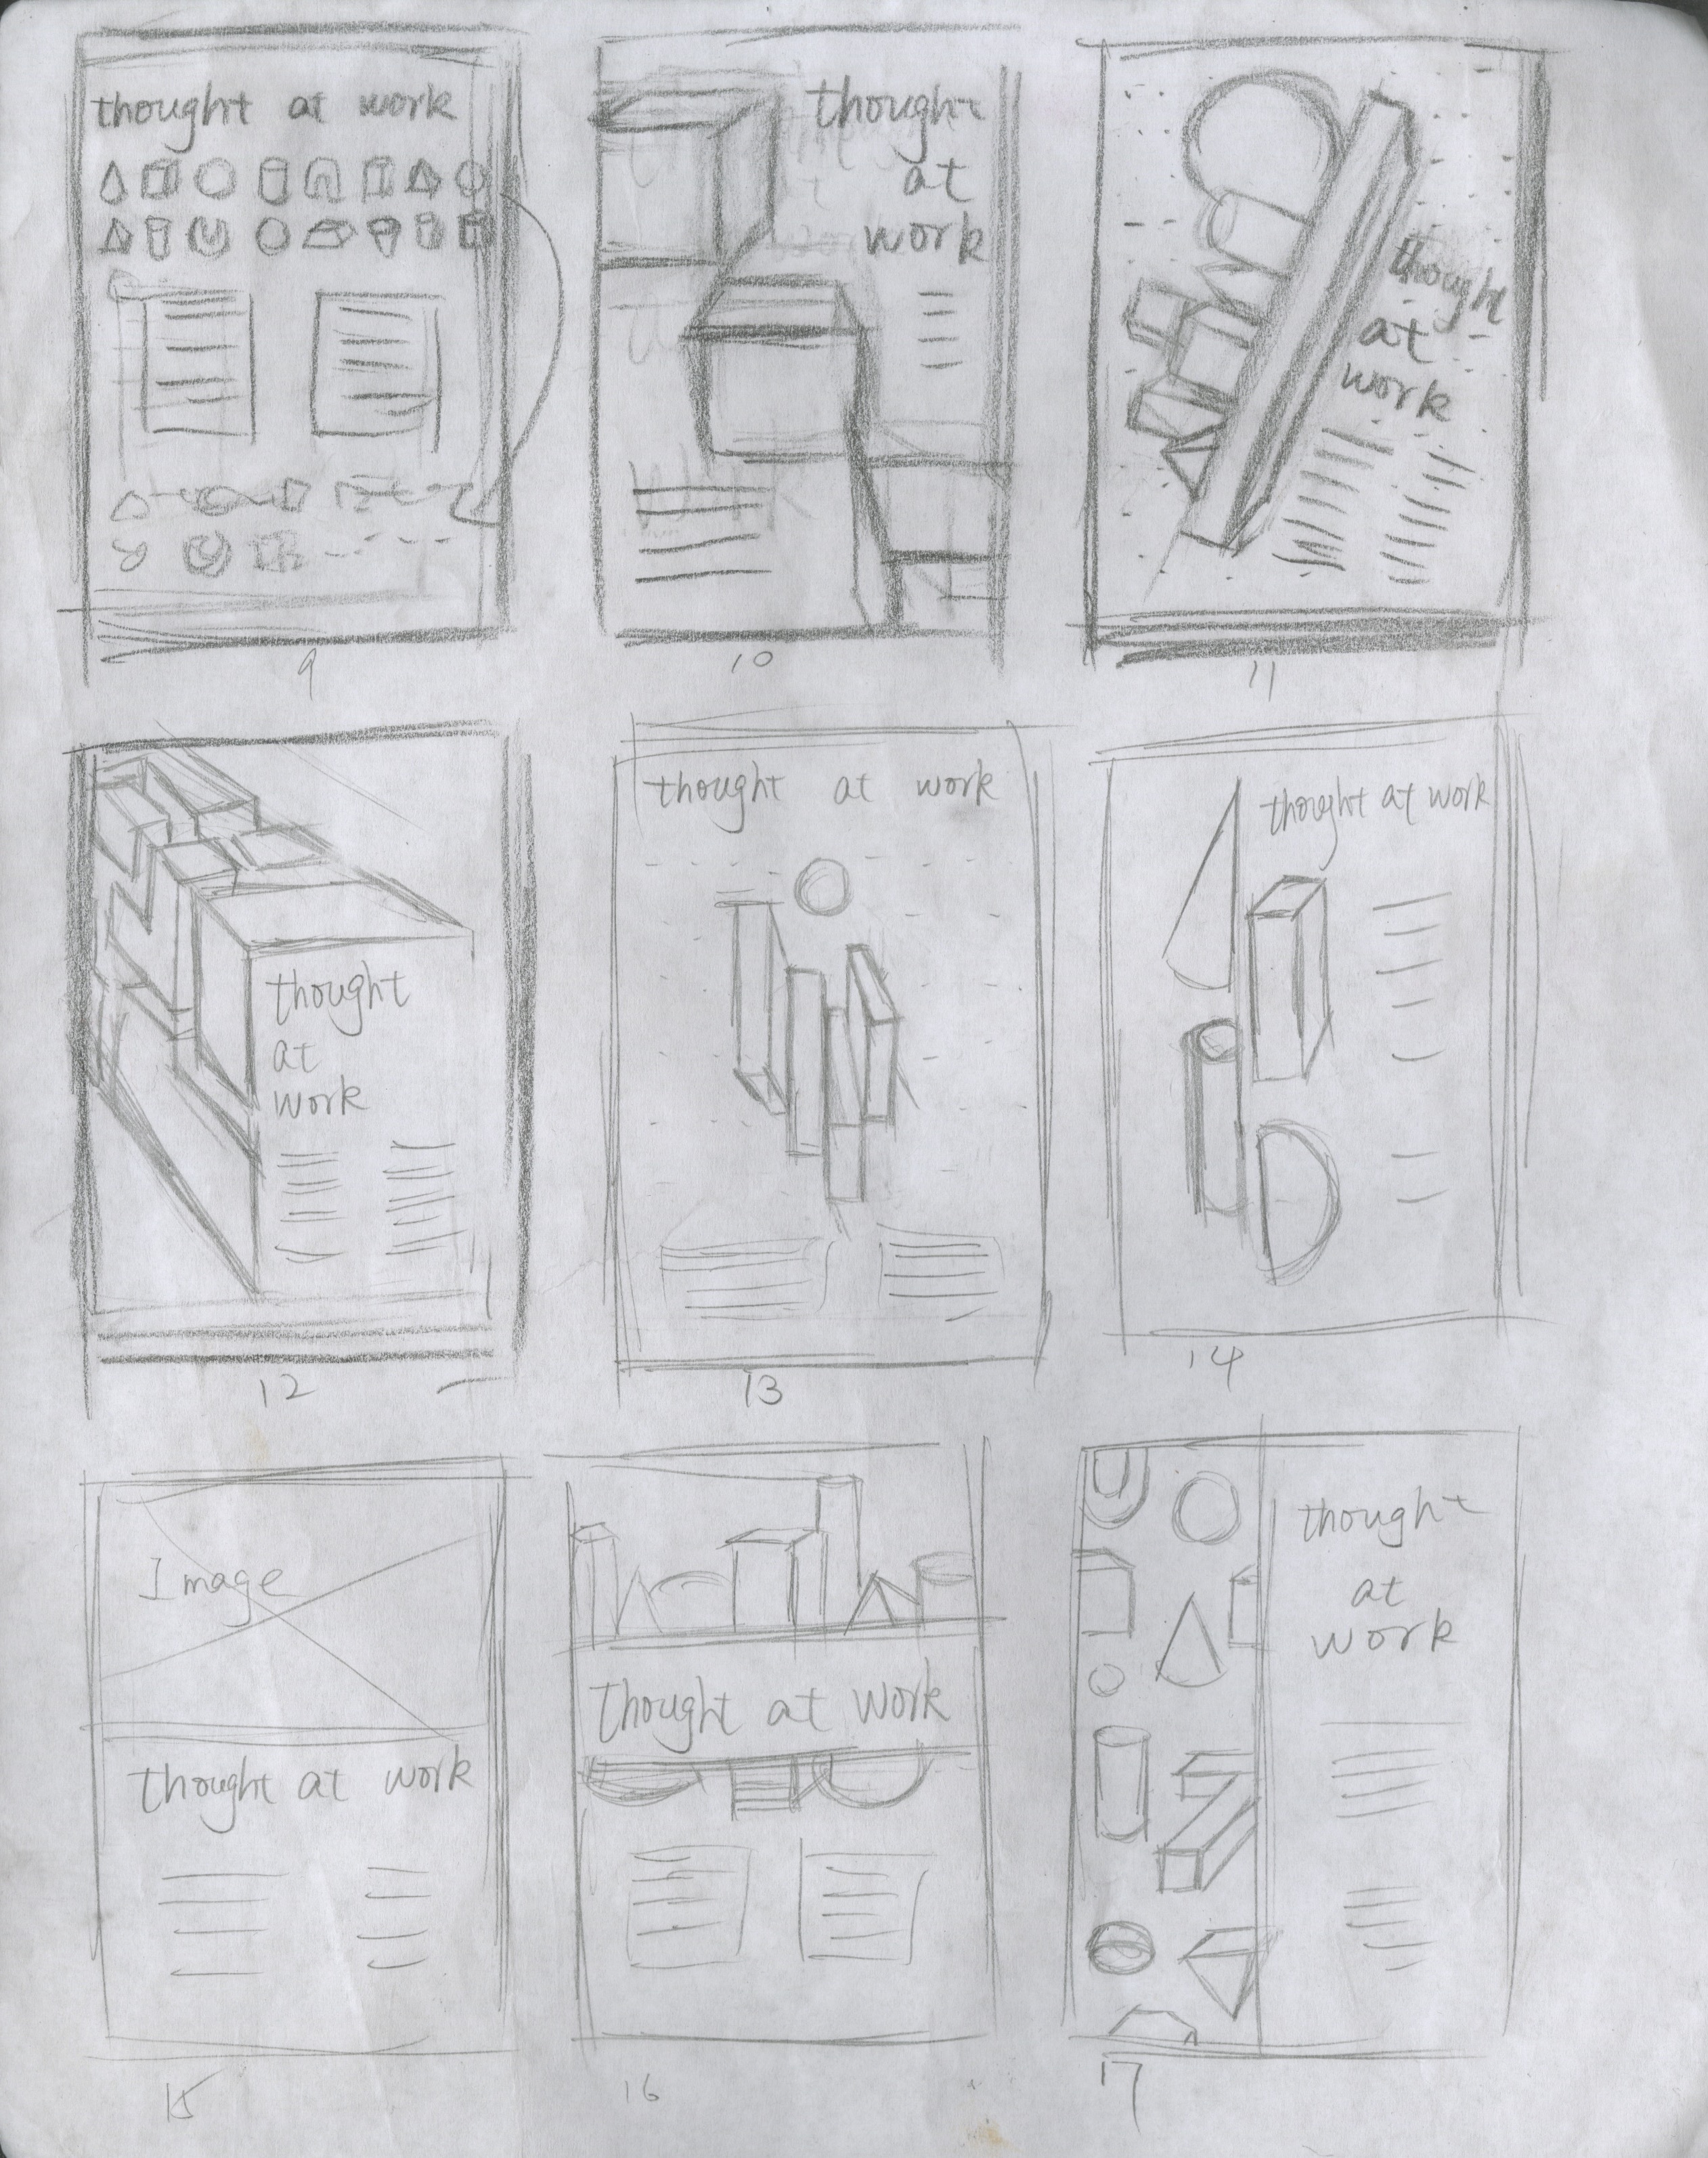 thought at work
9
thought
at
work
10
thought
at
work
11
thought
at
work
12
thought at work
13
thought at work
14
Image
thought at work
15
Thought at Work
16
thought
at
work
17